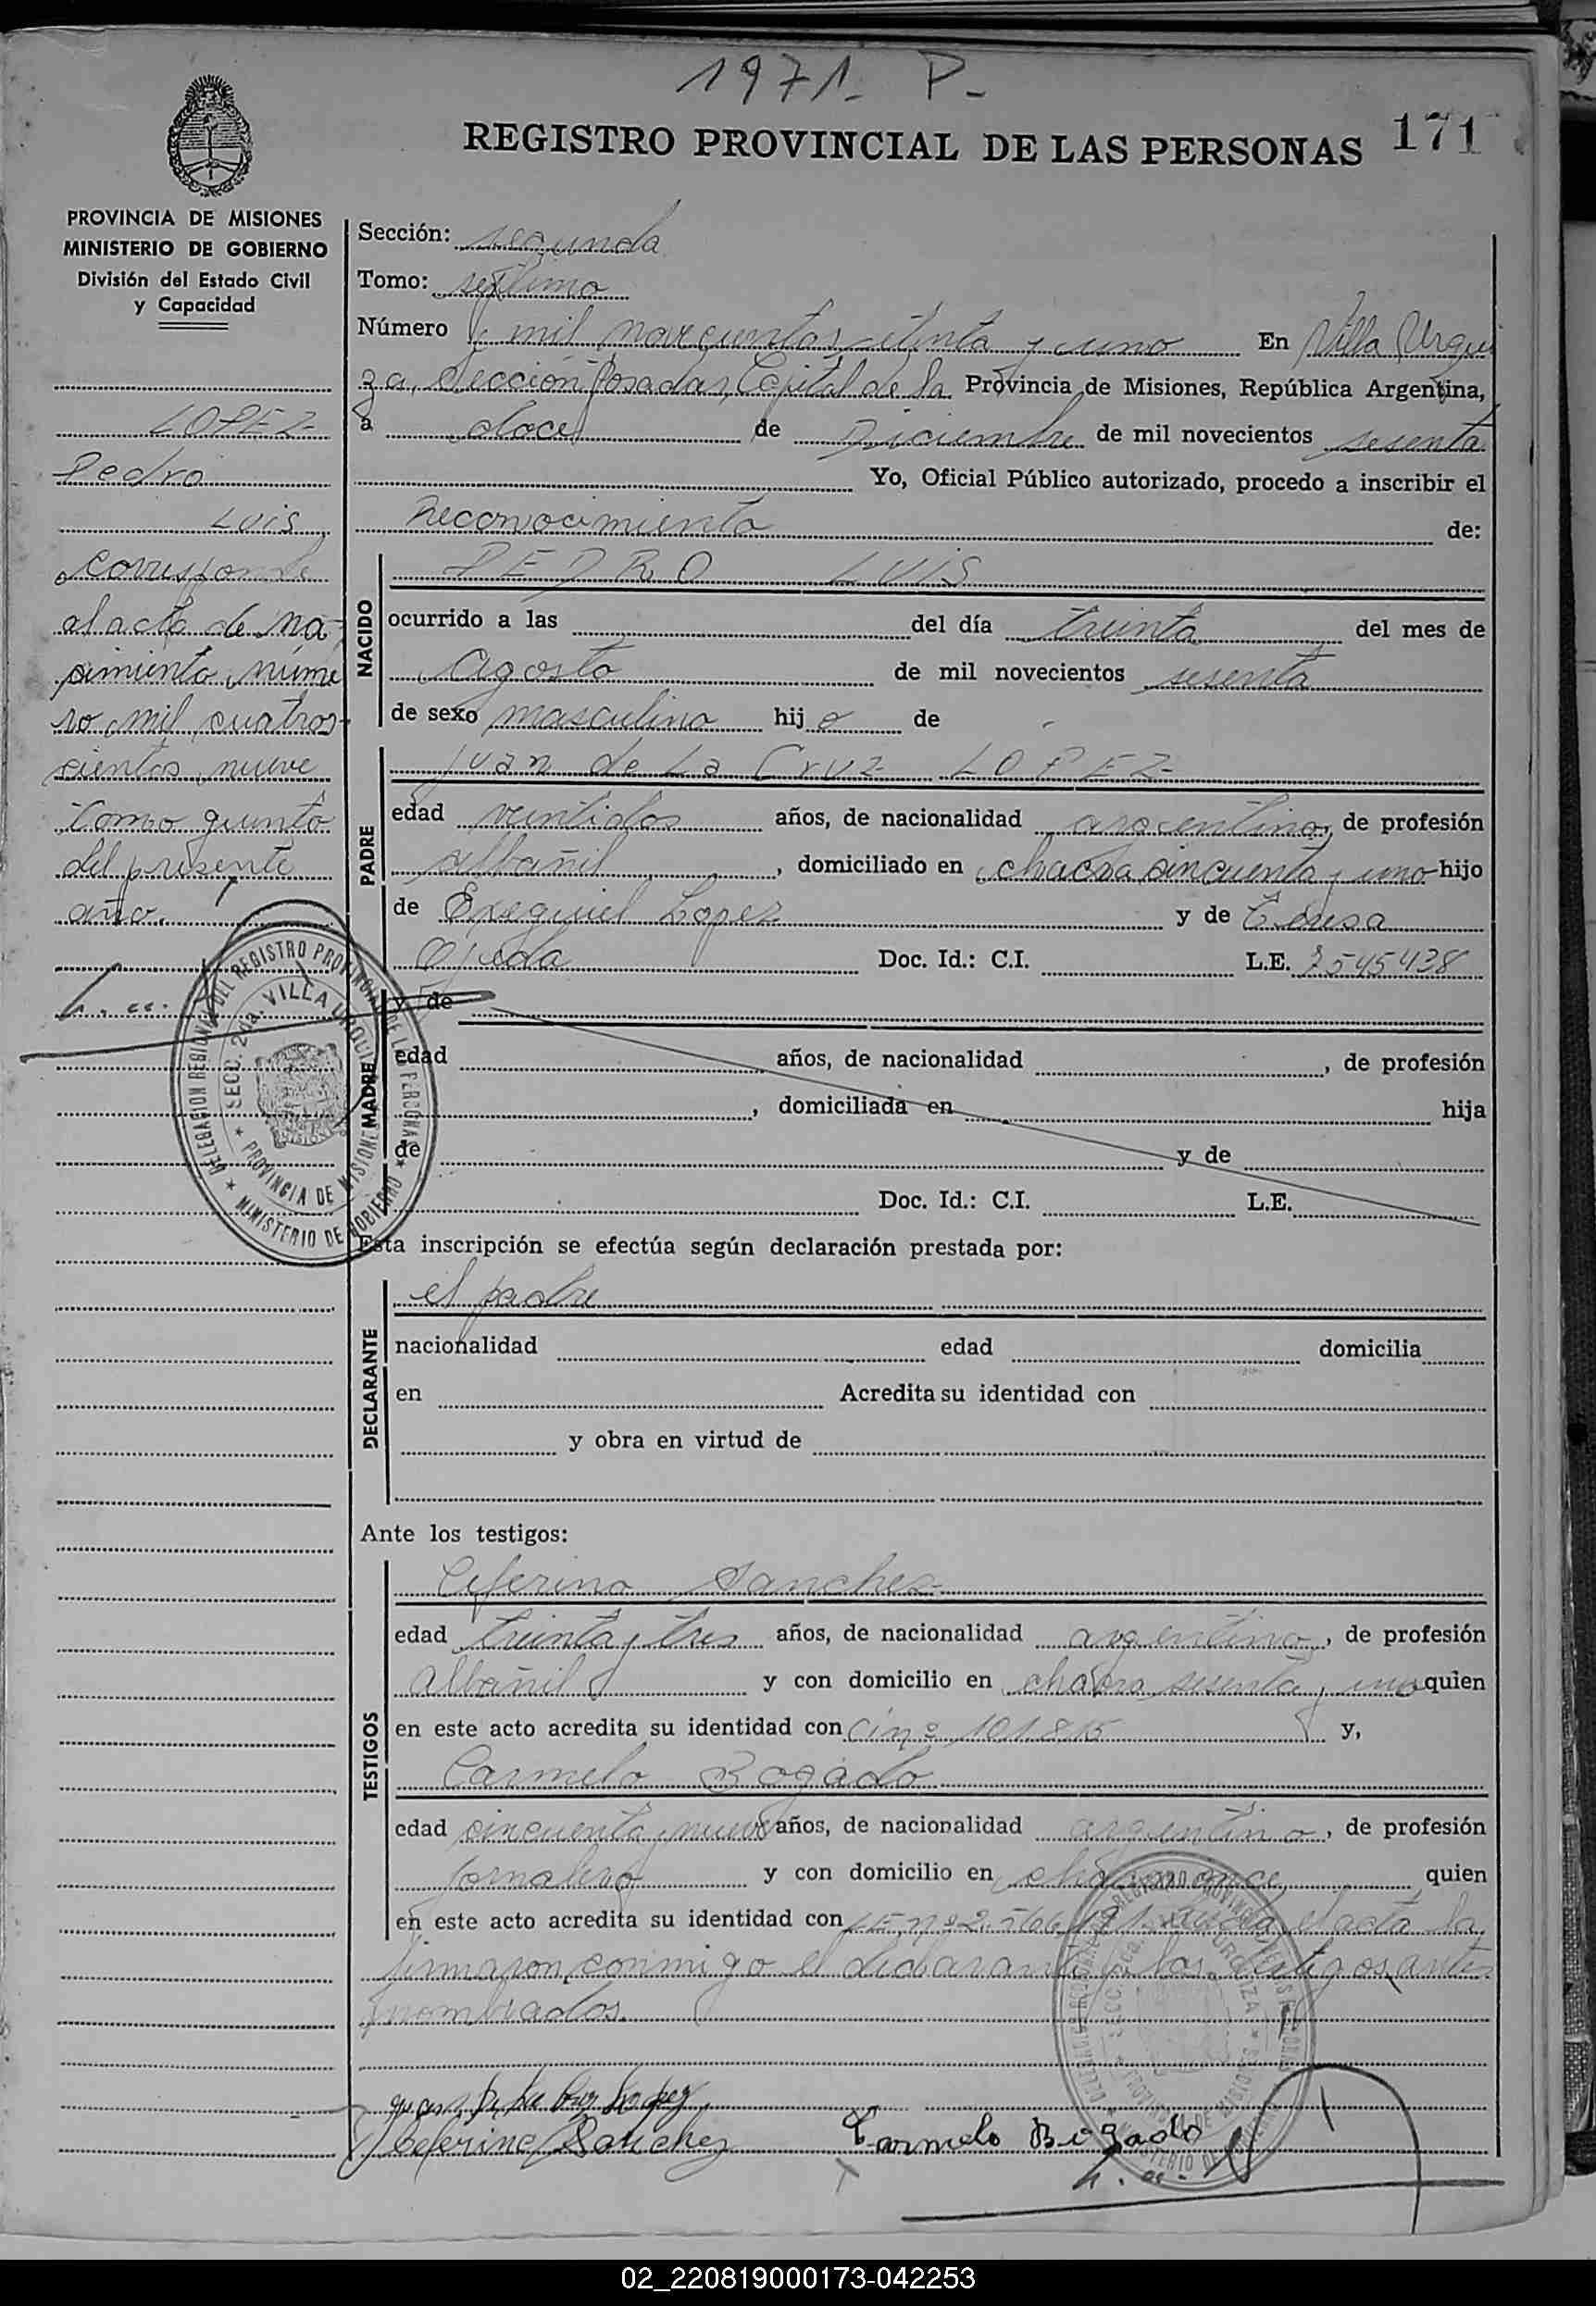 1971. P-
REGISTRO PROVINCIAL DE LAS PERSONAS 171
PROVINCIA DE MISIONES
MINISTERIO DE GOBIERNO
División del Estado Civil
y Capacidad
LOPEZ-
Pedro
Luis
corresponde
al acta de na
cimiento núme
ro mil cuatros-
cientos nueve
tomo quinto
del presente
año.
DELEGACION REGIONAL DEL REGISTRO PROVINCIAL DE LAS PERSONAS
SECC. 2da. VILLA URQUIZA
PROVINCIA DE MISIONES
MINISTERIO DE GOBIERNO
Sección: segunda
Tomo: septimo
Número mil novecientos setenta y uno En Villa Urqui
za, Sección Posadas, Capital de la Provincia de Misiones, República Argentina,
a doce de Diciembre de mil novecientos sesenta
Yo, Oficial Público autorizado, procedo a inscribir el
Reconocimiento de:
NACIDO
PEDRO LUIS
ocurrido a las del día treinta del mes de
Agosto de mil novecientos sesenta
de sexo masculino hijo de
PADRE
Juan de La Cruz LOPEZ-
edad veintidos años, de nacionalidad argentino, de profesión
albañil, domiciliado en chacra cincuenta y uno hijo
de Exequiel Lopez y de
Ojeda Doc. Id.: C.I. L.E. 7545438
MADRE
y de
edad años, de nacionalidad , de profesión
, domiciliada en hija
de y de
Doc. Id.: C.I. L.E.
Esta inscripción se efectúa según declaración prestada por:
DECLARANTE
el padre
nacionalidad edad domicilia
en Acredita su identidad con
y obra en virtud de
Ante los testigos:
TESTIGOS
Ceferino Sanchez-
edad treinta y tres años, de nacionalidad argentino, de profesión
albañil y con domicilio en chacra sesenta y uno quien
en este acto acredita su identidad con Ci nº 101.815 y,
Carmelo Bogado
edad cincuenta y nueve años, de nacionalidad argentino, de profesión
jornalero y con domicilio en quien
en este acto acredita su identidad con LE nº 2. el acta la
firmaron conmigo el declarante y los testigos antes
nombrados.
Juan de la Cruz Lopez
Ceferino Sanchez Carmelo Bogado
02_220819000173-042253